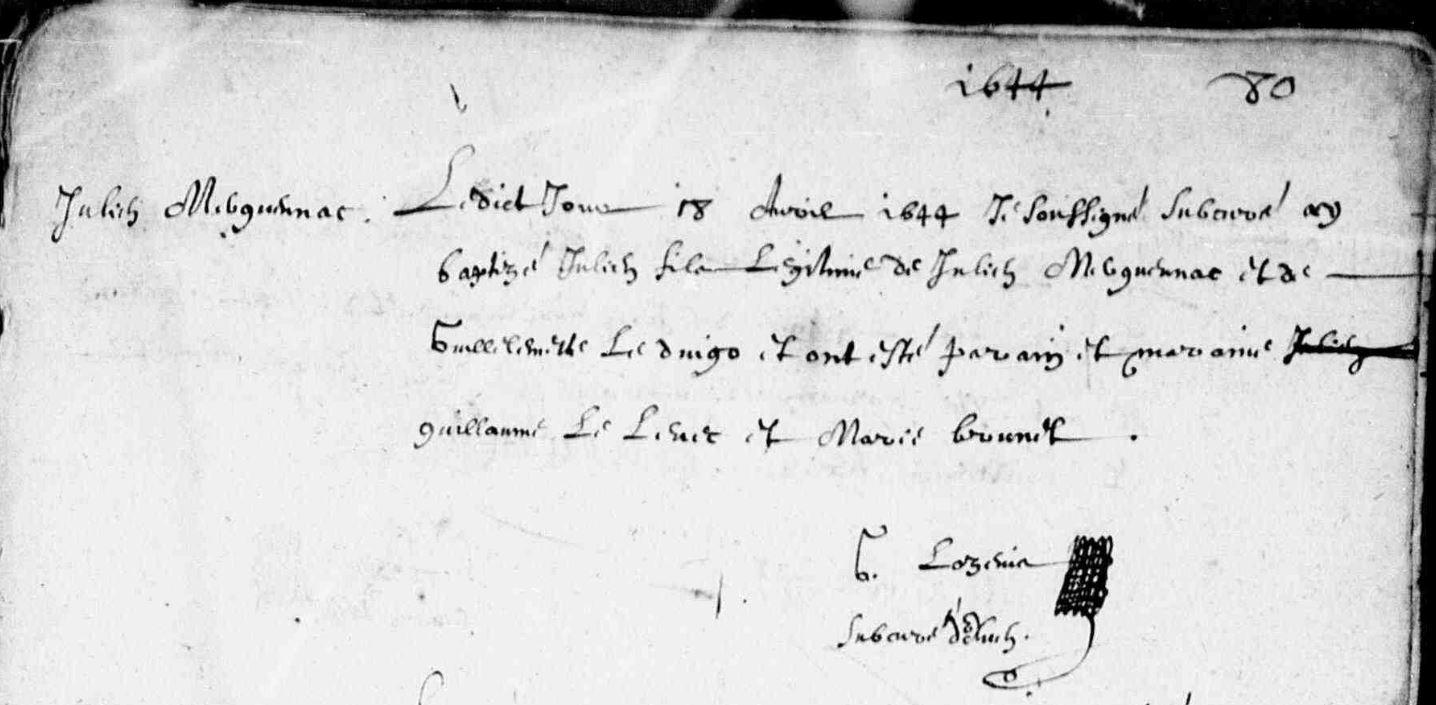 1644 80
Julien Mevguennac. Ledict Jour 18 Avril 1644 Je soussigné subcuré ay
baptizé Julien fils Legitime de Julien Mevguennac et de
Guillemette Le duigo et ont esté parain et maraine Julien
guillaume Le Lenec et Marie brunel.
G.
subcuré